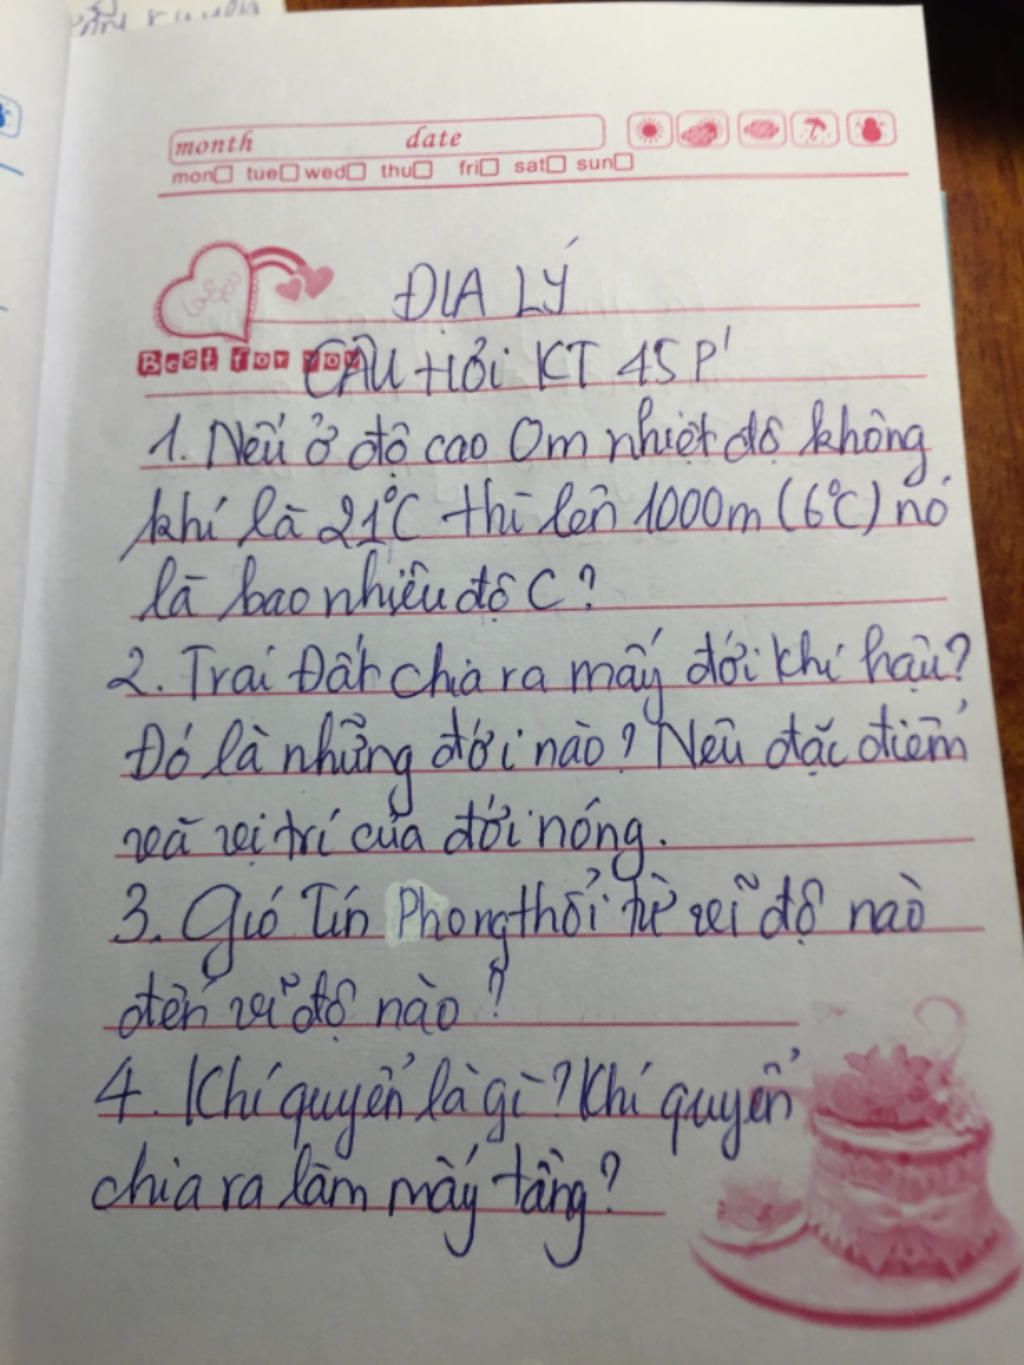 month date
mon tue wed thu fri sat sun
ĐỊA LÝ
Best for you
CÂU HỎI KT 45P'
1. Nếu ở độ cao 0m nhiệt độ không
khí là 21°C thì lên 1000m (6°C) nó
là bao nhiêu độ C?
2. Trái Đất chia ra mấy đới khí hậu?
Đó là những đới nào? Nêu đặc điểm
và vị trí của đới nóng.
3. Gió Tín Phong thổi từ vĩ độ nào
đến vĩ độ nào?
4. Khí quyển là gì? Khí quyển
chia ra làm mấy tầng?